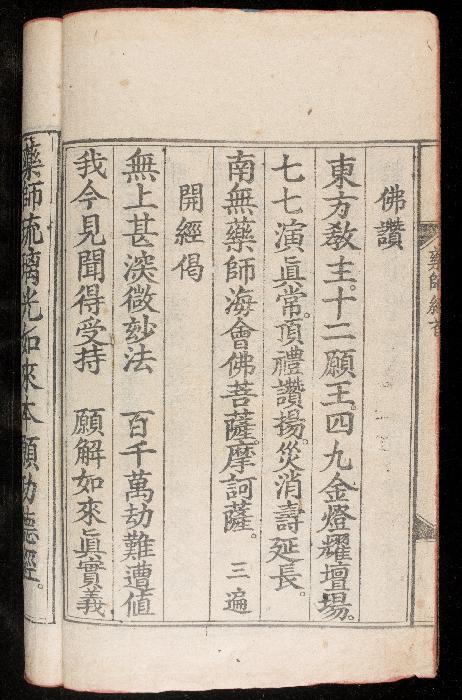 佛讚
東方教主。十二願王。四九金燈耀壇場。
七七演眞常。頂禮讚揚。災消壽延長。
南無藥師海會佛菩薩。摩訶薩。 三遍
開經偈
無上甚深微玅法 百千萬劫難遭值
我今見聞得受持 願解如來眞實義
藥師琉璃光如來本願功德經。
藥師經